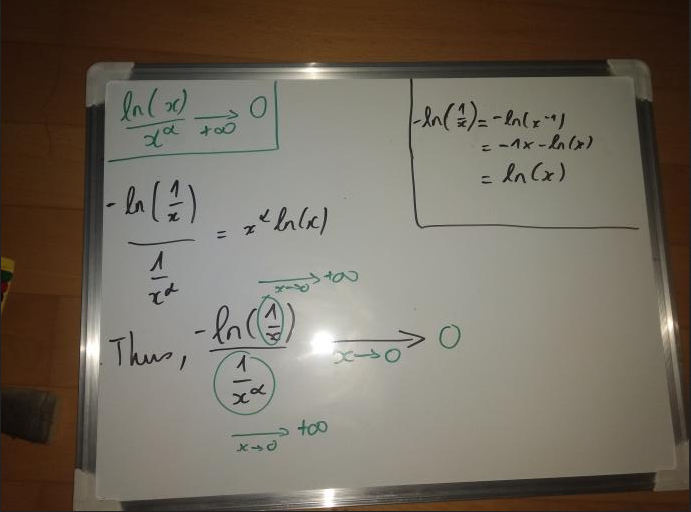 ln(x)/x^α →+∞ 0
-ln(1/x) = -ln(x⁻¹)
= -1x-ln(x)
= ln(x)
-ln(1/x) / (1/x^α) = x^α ln(x)
→x→0 +∞
Thus, -ln(1/x) / (1/x^α) →x→0 0
→x→0 +∞